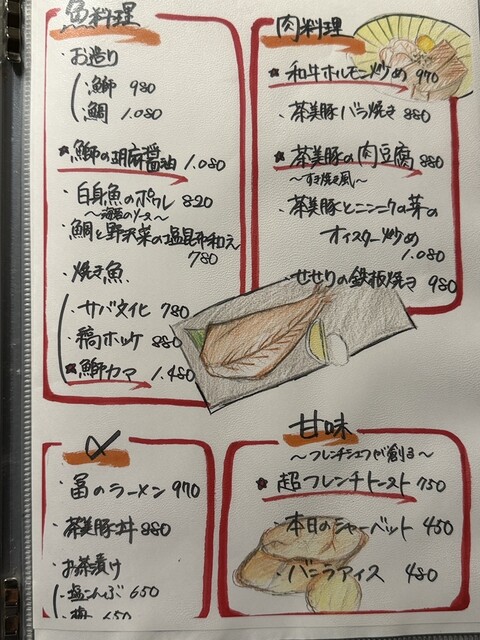 魚料理
・お造り
・鰤 980
・鯛 1.080
★鰤の胡麻醤油 1.080
・白身魚のポワレ 820
〜海苔のソース〜
・鯛と野沢菜の塩昆布和え
780
・焼き魚
・サバ文化 780
・縞ホッケ 880
★鰤カマ 1.480
肉料理
★和牛ホルモン炒め 970
・茶美豚バラ焼き 880
★茶美豚の肉豆腐 880
〜すき焼き風〜
・茶美豚とニンニクの芽の
オイスター炒め
1.080
・せせりの鉄板焼き 980
〆
・冨のラーメン 970
・茶美豚丼 880
・お茶漬け
・塩こんぶ 650
・梅 650
甘味
〜フレンチシェフが創る〜
★超フレンチトースト 750
・本日のシャーベット 450
・バニラアイス 480